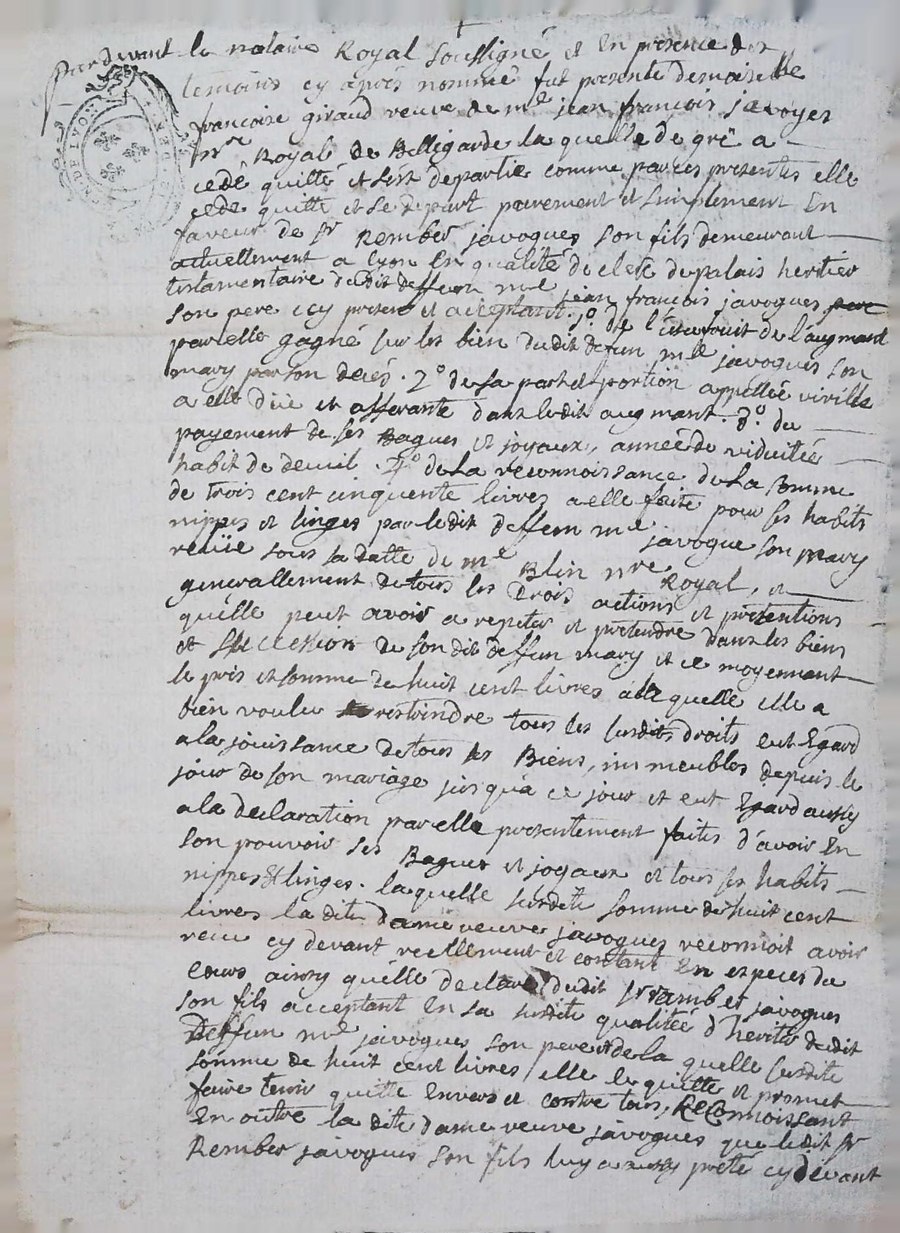 pardevant le notaire Royal soussigné et En presence des
temoins cy apres nommé fut presente demoiselle
francoise giraud veuve de me jean francois javoges
nre Royal de Belligarde la quelle de grê a
cedê quitté et sest departie comme par ces presentes elle
cede quitte et se depart purement et simplement En
faveur de sr Rember javogues son fils demeurant
actuellement a Lyon En qualité de clerc du palais heritier
testamentaire dudit deffun me jean francois javogues pere
son pere icy present et acceptant. 1o. de l'usufruit de l'augmant
par elle gagné sur les bien dudit defun me javogues son
mary par son decés. 2o de la part et portion appellée virille
a elle düe et afferante dans ledit augmant. 3o. du
payement de ses Bagues et joyaux, année de viduitée
habit de deuil. 4o de La reconnoissance de La somme
de trois cent cinquente livres a elle faite pour ses habits
nippes et linges par ledit deffun me javogue son mary
reçüe sous sa datte de me Blin nre Royal, et
generallement de tous les Drois actions et pretentions
quélle peut avoir a repeter et pretendre dans les biens
et succession de son dit deffun mary et ce moyennent
le pris et somme de huit cent livres a la quelle elle a
bien voulu restraindre tous les susdits droits eut Egard
a la jouissance de tous ses Biens, immeubles depuis le
jour de son mariage jusqu'à ce jour et eut Egard aussy
a la declaration par elle presentement faites d'avoir En
son pouvoir ses Bagues et joyaux et tous ses habits
nippes et linges. laquelle susdite somme de huit cent
livres la dite dame veuve javogues reconnoit avoir
receu cy devant reellement et contant En especes du
cours ainsy quélle declare dudit sr rambert javogues
son fils acceptant En sa susdite qualitée d'heritier dudit
Deffun me javogues son pere et de la quelle susdite
somme de huit cent livres elle le quitte et promet
faire tenir quitte Envers et contre tous, Reconnoissant
En outre la dite dame veuve javogues que ledit sr
Rember javogues son fils luy a aussy preté cy dévant